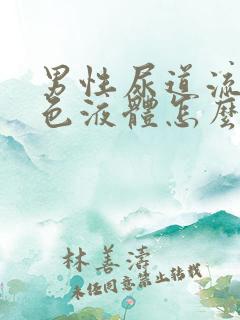 男性尿道流
色液體怎麼
林善濤
未任同意禁止转载